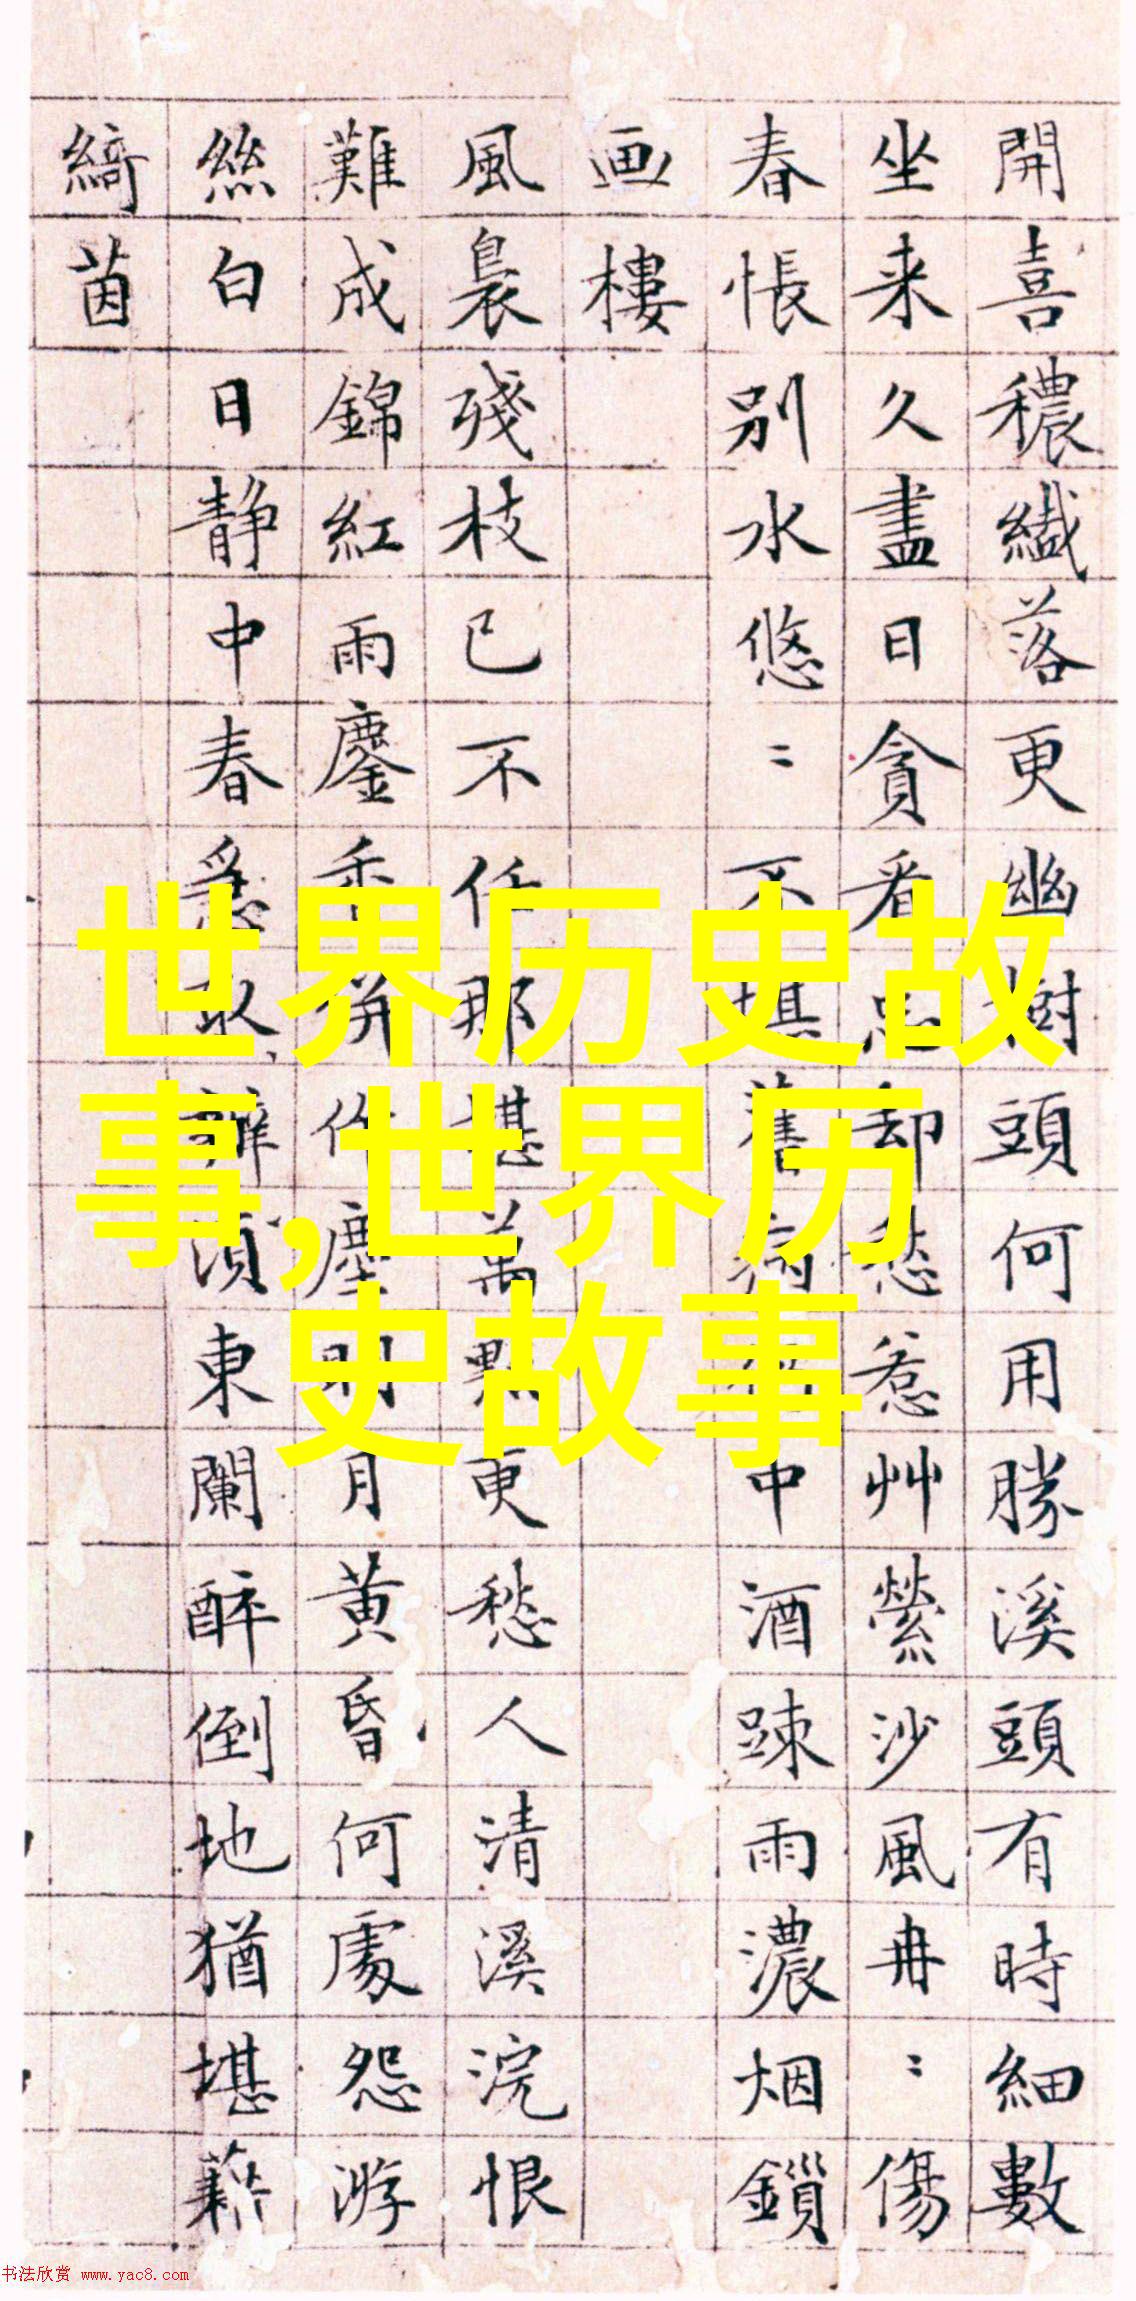 開喜穠纖落更幽樹頭何用勝溪頭有時細數
坐来久盡日貪看忘却愁惹艸縈沙風冉〻傷
春悵別水悠〻不堪舊病中酒踈雨濃烟鎖
画樓
風裊殘枝已不任那堪萬點更愁人清溪浣恨
難成錦紅雨鏖香併作塵月黄昏何處怨游
絲白日静中春須東闌醉倒地猶堪藉
綺茵
世界历史故
事,世界历
史故事
书法欣赏 www.yac8.com